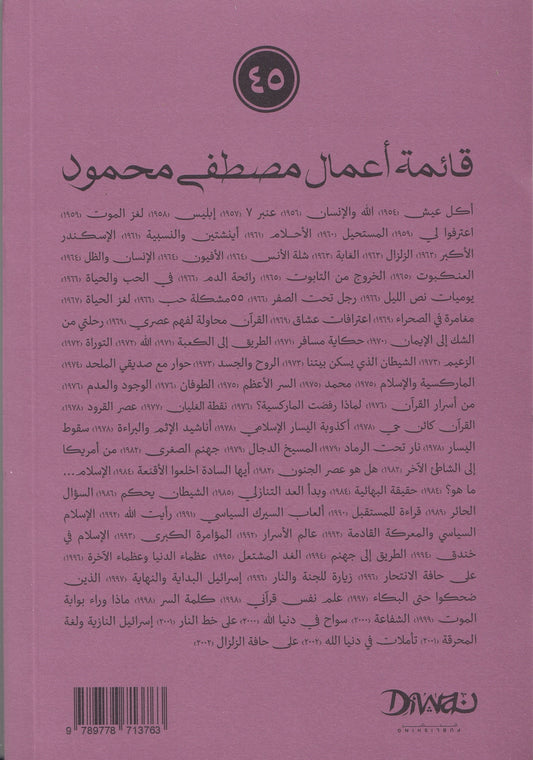 ٤٥
قائمة أعمال مصطفى محمود
أكل عيش (١٩٥٤) الله والإنسان (١٩٥٦) عنبر ٧ (١٩٥٧) إبليس (١٩٥٨) لغز الموت (١٩٥٩)
اعترفوا لي (١٩٥٩) المستحيل (١٩٦٠) الأحلام (١٩٦١) أينشتين والنسبية (١٩٦١) الإسكندر
الأكبر (١٩٦٣) الزلزال (١٩٦٣) الغابة (١٩٦٣) شلة الأنس (١٩٦٤) الأفيون (١٩٦٤) الإنسان والظل (١٩٦٤)
العنكبوت (١٩٦٥) الخروج من التابوت (١٩٦٥) رائحة الدم (١٩٦٦) في الحب والحياة (١٩٦٦)
يوميات نص الليل (١٩٦٦) رجل تحت الصفر (١٩٦٦) ٥٥ مشكلة حب (١٩٦٦) لغز الحياة (١٩٦٧)
مغامرة في الصحراء (١٩٦٩) اعترافات عشاق (١٩٦٩) القرآن محاولة لفهم عصري (١٩٦٩) رحلتي من
الشك إلى الإيمان (١٩٧٠) حكاية مسافر (١٩٧١) الطريق إلى الكعبة (١٩٧١) الله (١٩٧٢) التوراة (١٩٧٢)
الزعيم (١٩٧٣) الشيطان الذي يسكن بيتنا (١٩٧٣) الروح والجسد (١٩٧٣) حوار مع صديقي الملحد (١٩٧٤)
الماركسية والإسلام (١٩٧٥) محمد (١٩٧٥) السر الأعظم (١٩٧٥) الطوفان (١٩٧٦) الوجود والعدم (١٩٧٦)
من أسرار القرآن (١٩٧٦) لماذا رفضت الماركسية؟ (١٩٧٦) نقطة الغليان (١٩٧٧) عصر القرود (١٩٧٨)
القرآن كائن حي (١٩٧٨) أكذوبة اليسار الإسلامي (١٩٧٨) أناشيد الإثم والبراءة (١٩٧٨) سقوط
اليسار (١٩٧٨) نار تحت الرماد (١٩٧٩) المسيخ الدجال (١٩٧٩) جهنم الصغرى (١٩٨٢) من أمريكا
إلى الشاطئ الآخر (١٩٨٢) هل هو عصر الجنون (١٩٨٢) أيها السادة اخلعوا الأقنعة (١٩٨٤) الإسلام...
ما هو؟ (١٩٨٤) حقيقة البهائية (١٩٨٤) وبدأ العد التنازلي (١٩٨٥) الشيطان يحكم (١٩٨٦) السؤال
الحائر (١٩٨٩) قراءة للمستقبل (١٩٩٠) ألعاب السيرك السياسي (١٩٩١) رأيت الله (١٩٩٢) الإسلام
السياسي والمعركة القادمة (١٩٩٢) عالم الأسرار (١٩٩٢) المؤامرة الكبرى (١٩٩٣) الإسلام في
خندق (١٩٩٤) الطريق إلى جهنم (١٩٩٤) الغد المشتعل (١٩٩٥) عظماء الدنيا وعظماء الآخرة (١٩٩٦)
على حافة الانتحار (١٩٩٦) زيارة للجنة والنار (١٩٩٦) إسرائيل البداية والنهاية (١٩٩٧) الذين
ضحكوا حتى البكاء (١٩٩٧) علم نفس قرآني (١٩٩٨) كلمة السر (١٩٩٨) ماذا وراء بوابة
الموت (١٩٩٩) الشفاعة (٢٠٠٠) سواح في دنيا الله (٢٠٠٠) على خط النار (٢٠٠١) إسرائيل النازية ولغة
المحرقة (٢٠٠١) تأملات في دنيا الله (٢٠٠٢) على حافة الزلزال (٢٠٠٢)
DIWAN
PUBLISHING
9 789778 713763